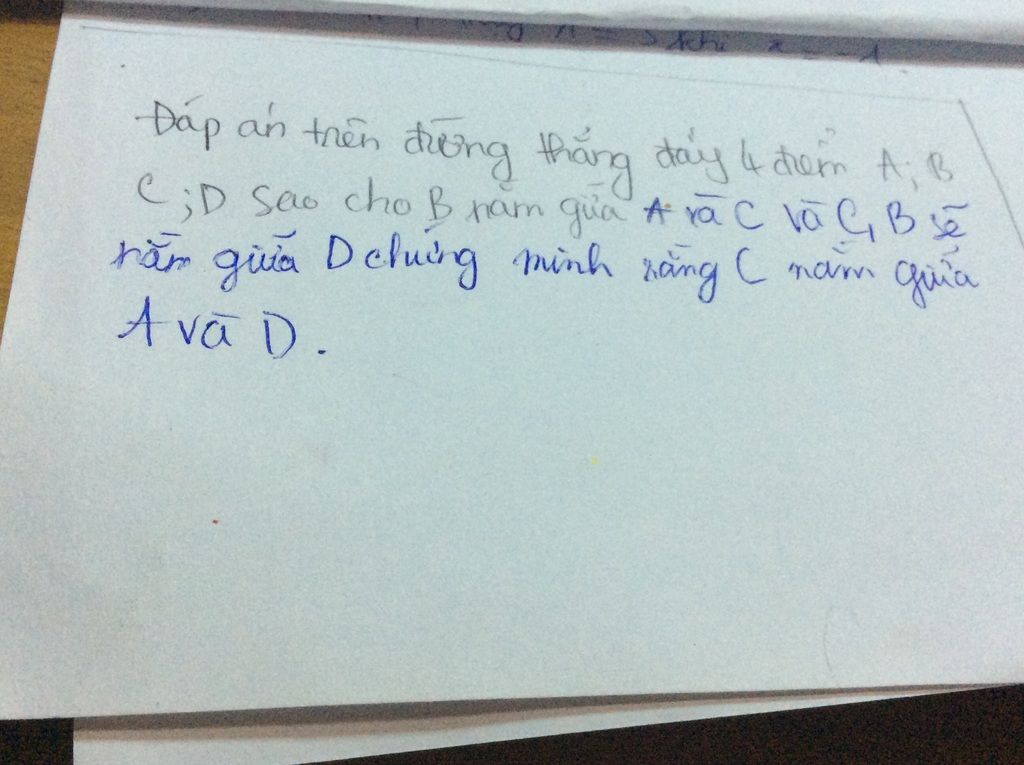 Đáp án trên đường thẳng đấy 4 điểm A; B
C; D sao cho B nằm giữa A và C và C, B sẽ
nằm giữa D chứng minh rằng C nằm giữa
A và D.